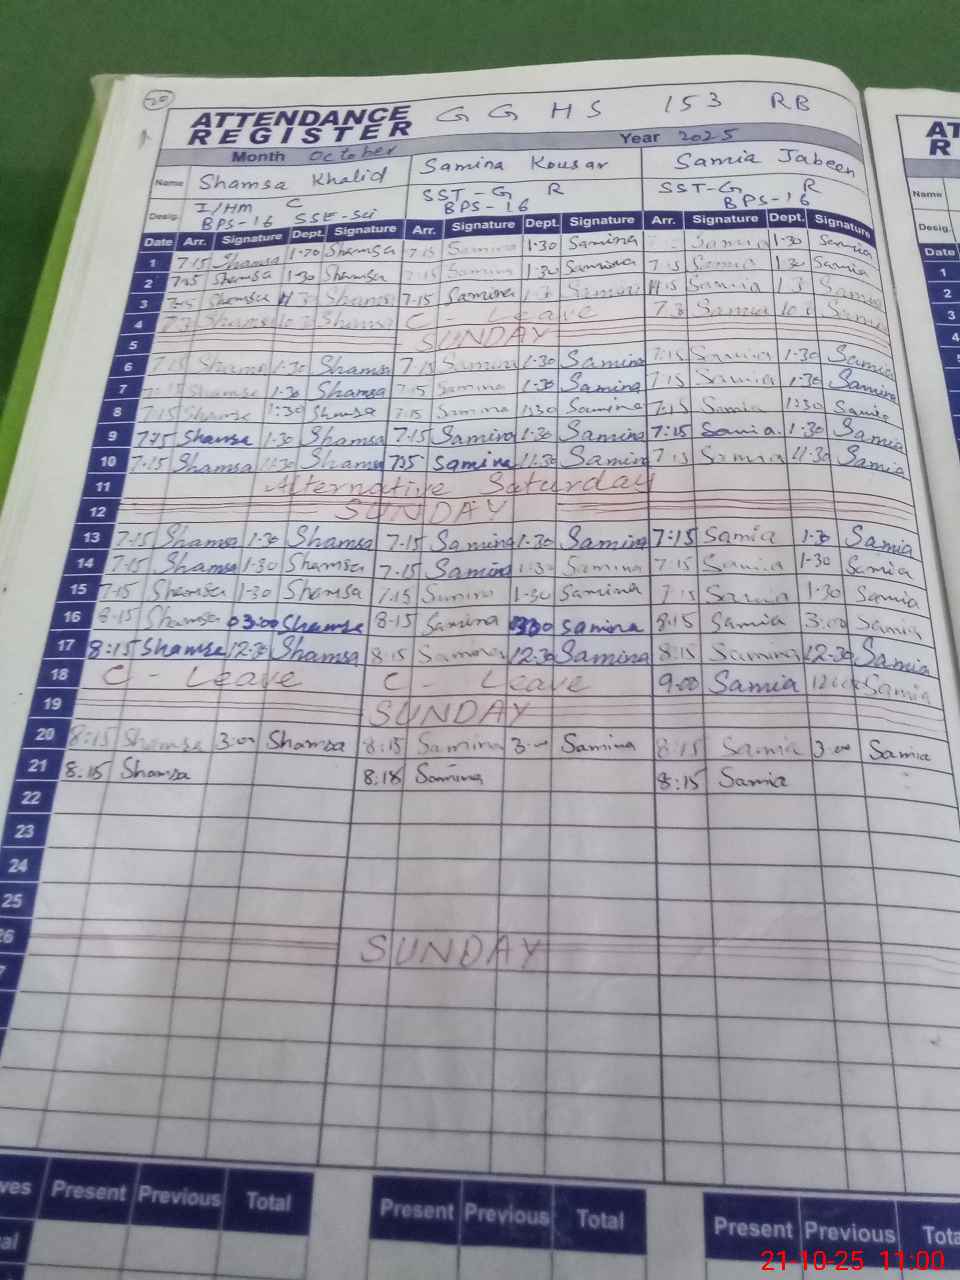 20
ATTENDANCE REGISTER G G H S 153 RB
Month October Year 2025
Name Shamsa Khalid Samina Kousar Samia Jabeen
Desig. I/HM C SST-G R SST-G R
BPS-16 SSE-Sci BPS-16 BPS-16
Date Arr. Signature Dept. Signature Arr. Signature Dept. Signature Arr. Signature Dept. Signature
1 7:15 Shamsa 1:30 Shamsa 7:15 Samina 1:30 Samina Samia 1:30 Samia
2 Shamsa 1:30 Shamsa 7:15 Samina 1:30 Samina 7:15 Samia 1:30 Samia
3 Shamsa Shamsa 7:15 Samina Samina Samia Samia
4 Shamsa Shamsa C - Leave Samia Samia
5 SUNDAY
6 7:15 Shamsa 1:30 Shamsa 7:15 Samina 1:30 Samina 7:15 Samia 1:30 Samia
7 Shamsa 1:30 Shamsa 7:15 Samina 1:30 Samina 7:15 Samia 1:30 Samina
8 7:15 Shamsa 1:30 Shamsa 7:15 Samina 1:30 Samina 7:15 Samia 1:30 Samia
9 7:15 Shamsa 1:30 Shamsa 7:15 Samina 1:30 Samina 7:15 Samia 1:30 Samia
10 7:15 Shamsa 11:30 Shamsa Samina 11:30 Samina 7:15 Samia 11:30 Samia
11 Alternative Saturday
12 SUNDAY
13 7:15 Shamsa 1:30 Shamsa 7:15 Samina 1:30 Samina 7:15 Samia 1:30 Samia
14 7:15 Shamsa 1:30 Shamsa 7:15 Samina 1:30 Samina 7:15 Samia 1:30 Samia
15 7:15 Shamsa 1:30 Shamsa 7:15 Samina 1:30 Samina 7:15 Samia 1:30 Samia
16 8:15 Shamsa 03:00 Shamsa 8:15 Samina Samina 8:15 Samia 3:00 Samia
17 8:15 Shamsa 12:30 Shamsa 8:15 Samina 12:30 Samina 8:15 Samina 12:30 Samia
18 C - Leave C - Leave 9:00 Samia Samia
19 SUNDAY
20 8:15 Shamsa 3:00 Shamsa 8:15 Samina 3:00 Samina 8:15 Samia 3:00 Samia
21 8:15 Shamsa 8:18 Samina 8:15 Samia
22
23
24
25
26 SUNDAY
7
ves Present Previous Total Present Previous Total Present Previous Tota
al
AT
R
Name
Desig.
Date
1
2
3
4
21-10-25 11:00